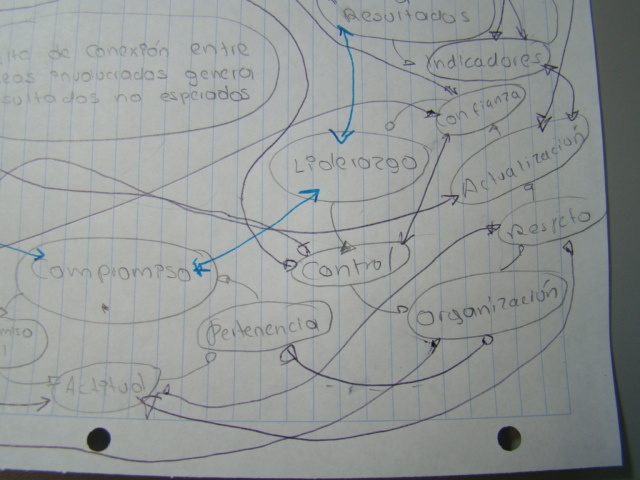 Resultados
Indicadores
lta de conexión entre
eas involucradas genera
sultados no esperados
Confianza
Liderazgo
Actualización
Respeto
Control
Compromiso
Organización
Pertenencia
miso
Actitud